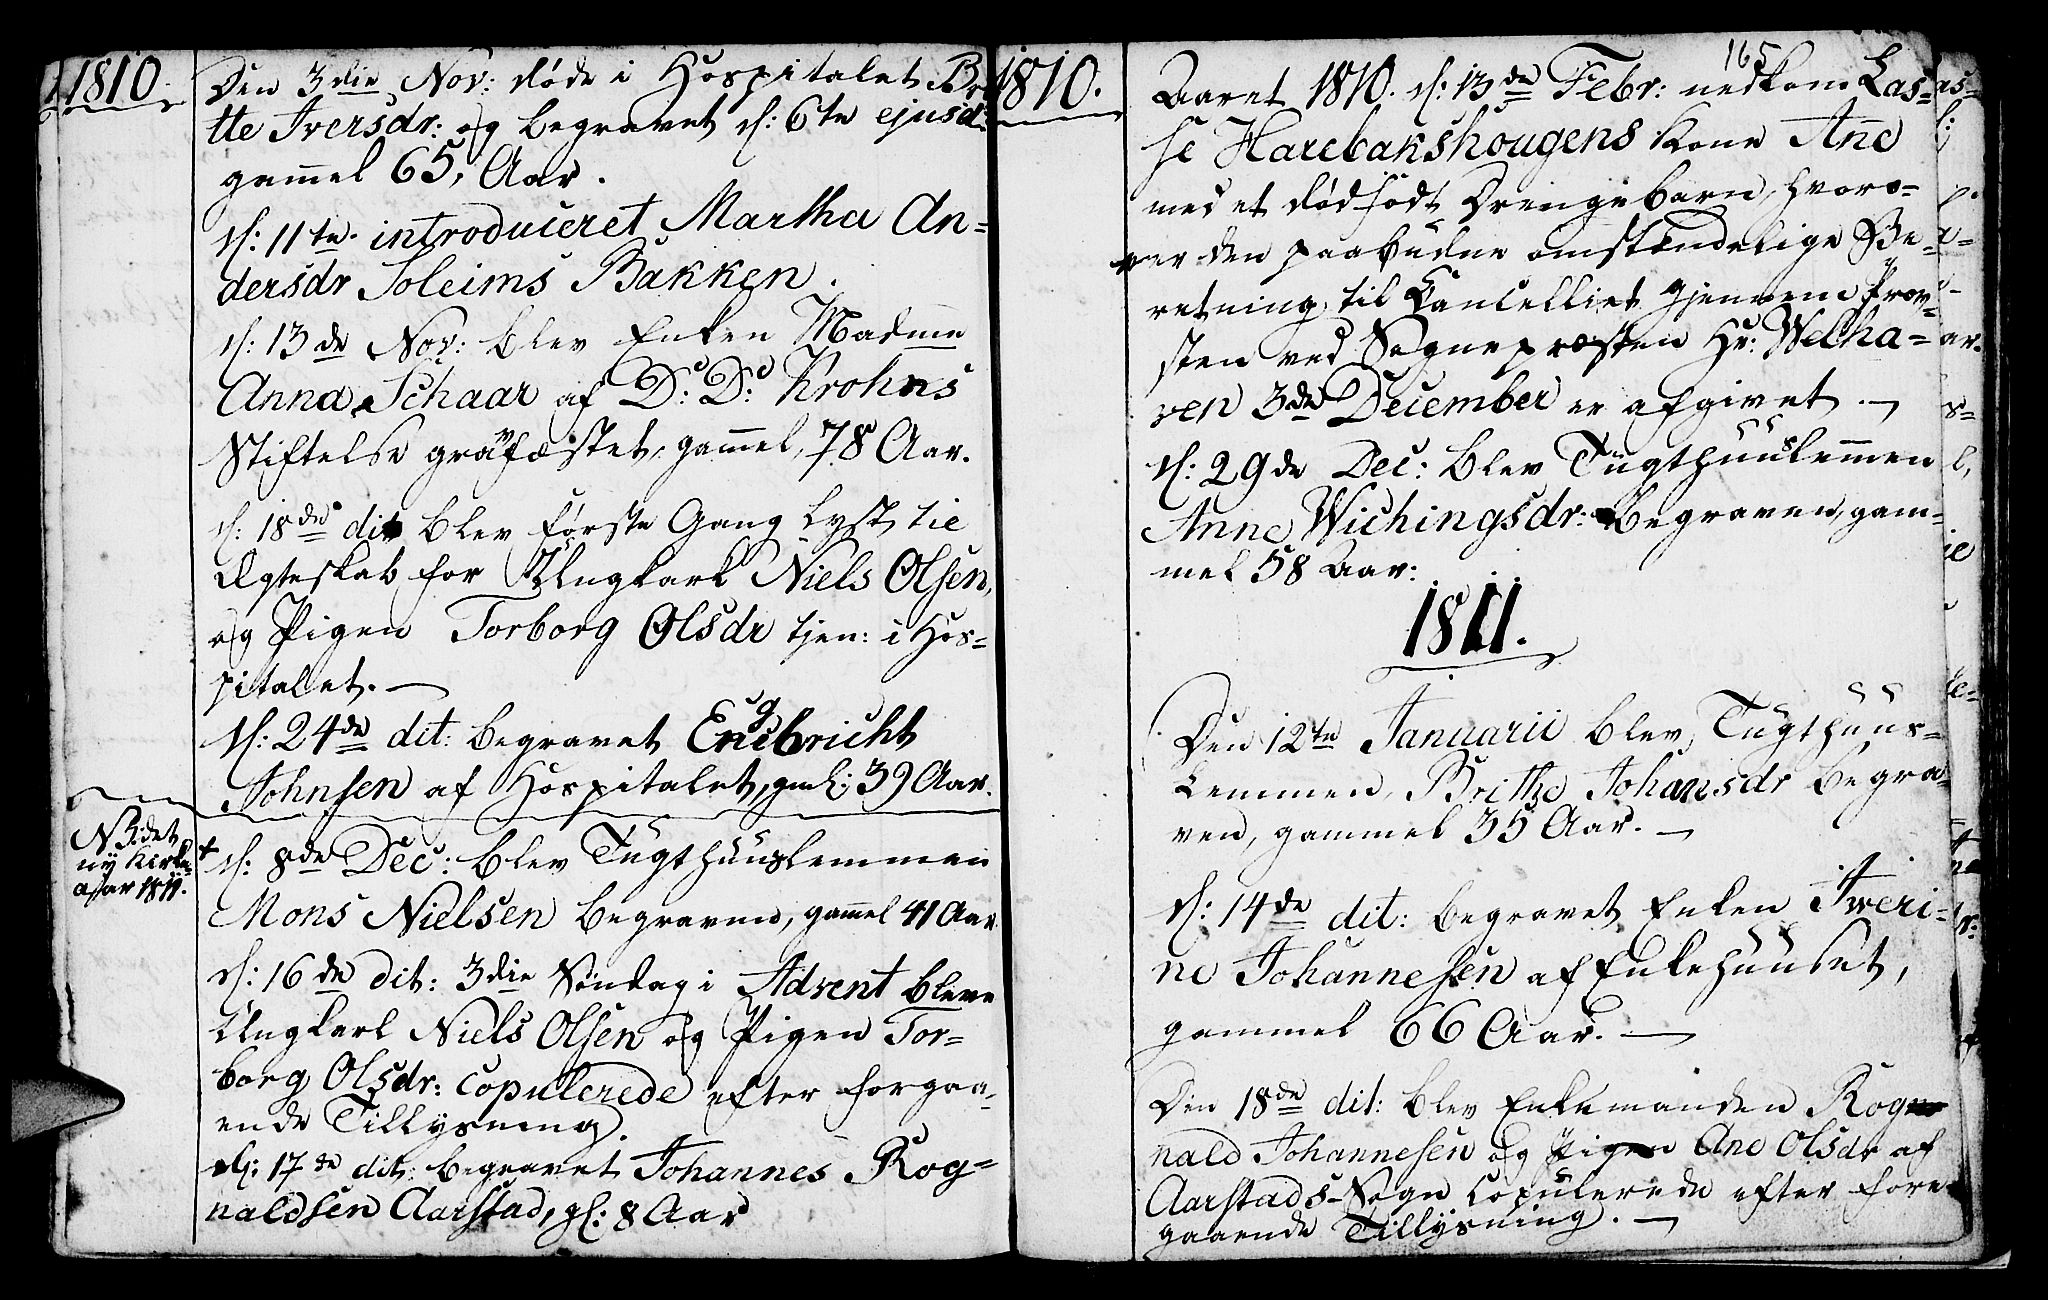 1810.
Den 3die Nov: døde i Hospitalet Bri-
tte Iversdr: og begravet d: 6te ejusd:
gam̄el 65, Aar.
d: 11te introduceret Martha An=
dersdr Soleims Bakken.
d: 13de Nov: blev Enken Madme
Anna Schaar af D: D: Krohns
Stiftelse gravfæstet, gam̄el, 78 Aar.
d: 18de dit blev første Gang lyst til
Ægteskab for Ungkarl Niels Olsen,
og Pigen Torborg Olsdr tjen: i Hos=
pitalet. —
d: 24de dit: begravet Engebricht
Johnsen af Hospitalet, gml: 39 Aar.
NB: det
ny Kirke-
aar 1811.
+ d: 8de Dec: blev Tugthuuslemmen
Mons Nielsen begraven, gam̄el 41 Aar
d: 16de dit: 3die Søndag i Advent bleve
Ungkarl Niels Olsen og Pigen Tor=
borg Olsdr: copulerede efter forgaa-
ende Tillysning.
d: 17de dit: begravet Johannes Rog=
naldsen Aarstad, gl: 8 Aar
1810.
165
Aaret 1810. d: 13de Febr: nedkom Las=
se Harebakshougens Kone Ane
med et dødfødt Drengebarn, hvoro=
ver den paabudne omstændelige Be=
retning til Cancelliet gjennem Prov=
sten ved Sognepræsten Hr: Welha=
ven 3de December er afgivet. —
d: 29de Dec: blev Tugthuuslem̄en
Anne Wichingsdr: begraven, gam=
mel 58 Aar:
1811.
Den 12te Januarii blev Tugthuus=
Lemmen, Brithe Johansdr begra=
ven, gammel 35 Aar. —
d: 14de dit: begravet Enken Iveri=
ne Johannesen af Enkehuuset,
gammel 66 Aar. —
Den 18de dit: blev Enkemanden Rog
nald Johannesen og Pigen Ane Olsdr af
Aarstads-Sogn copulerede efter fore=
gaaende Tillysning. —